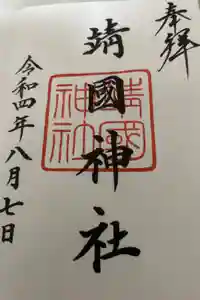 奉拝
靖國神社
靖國神社
令和四年八月七日